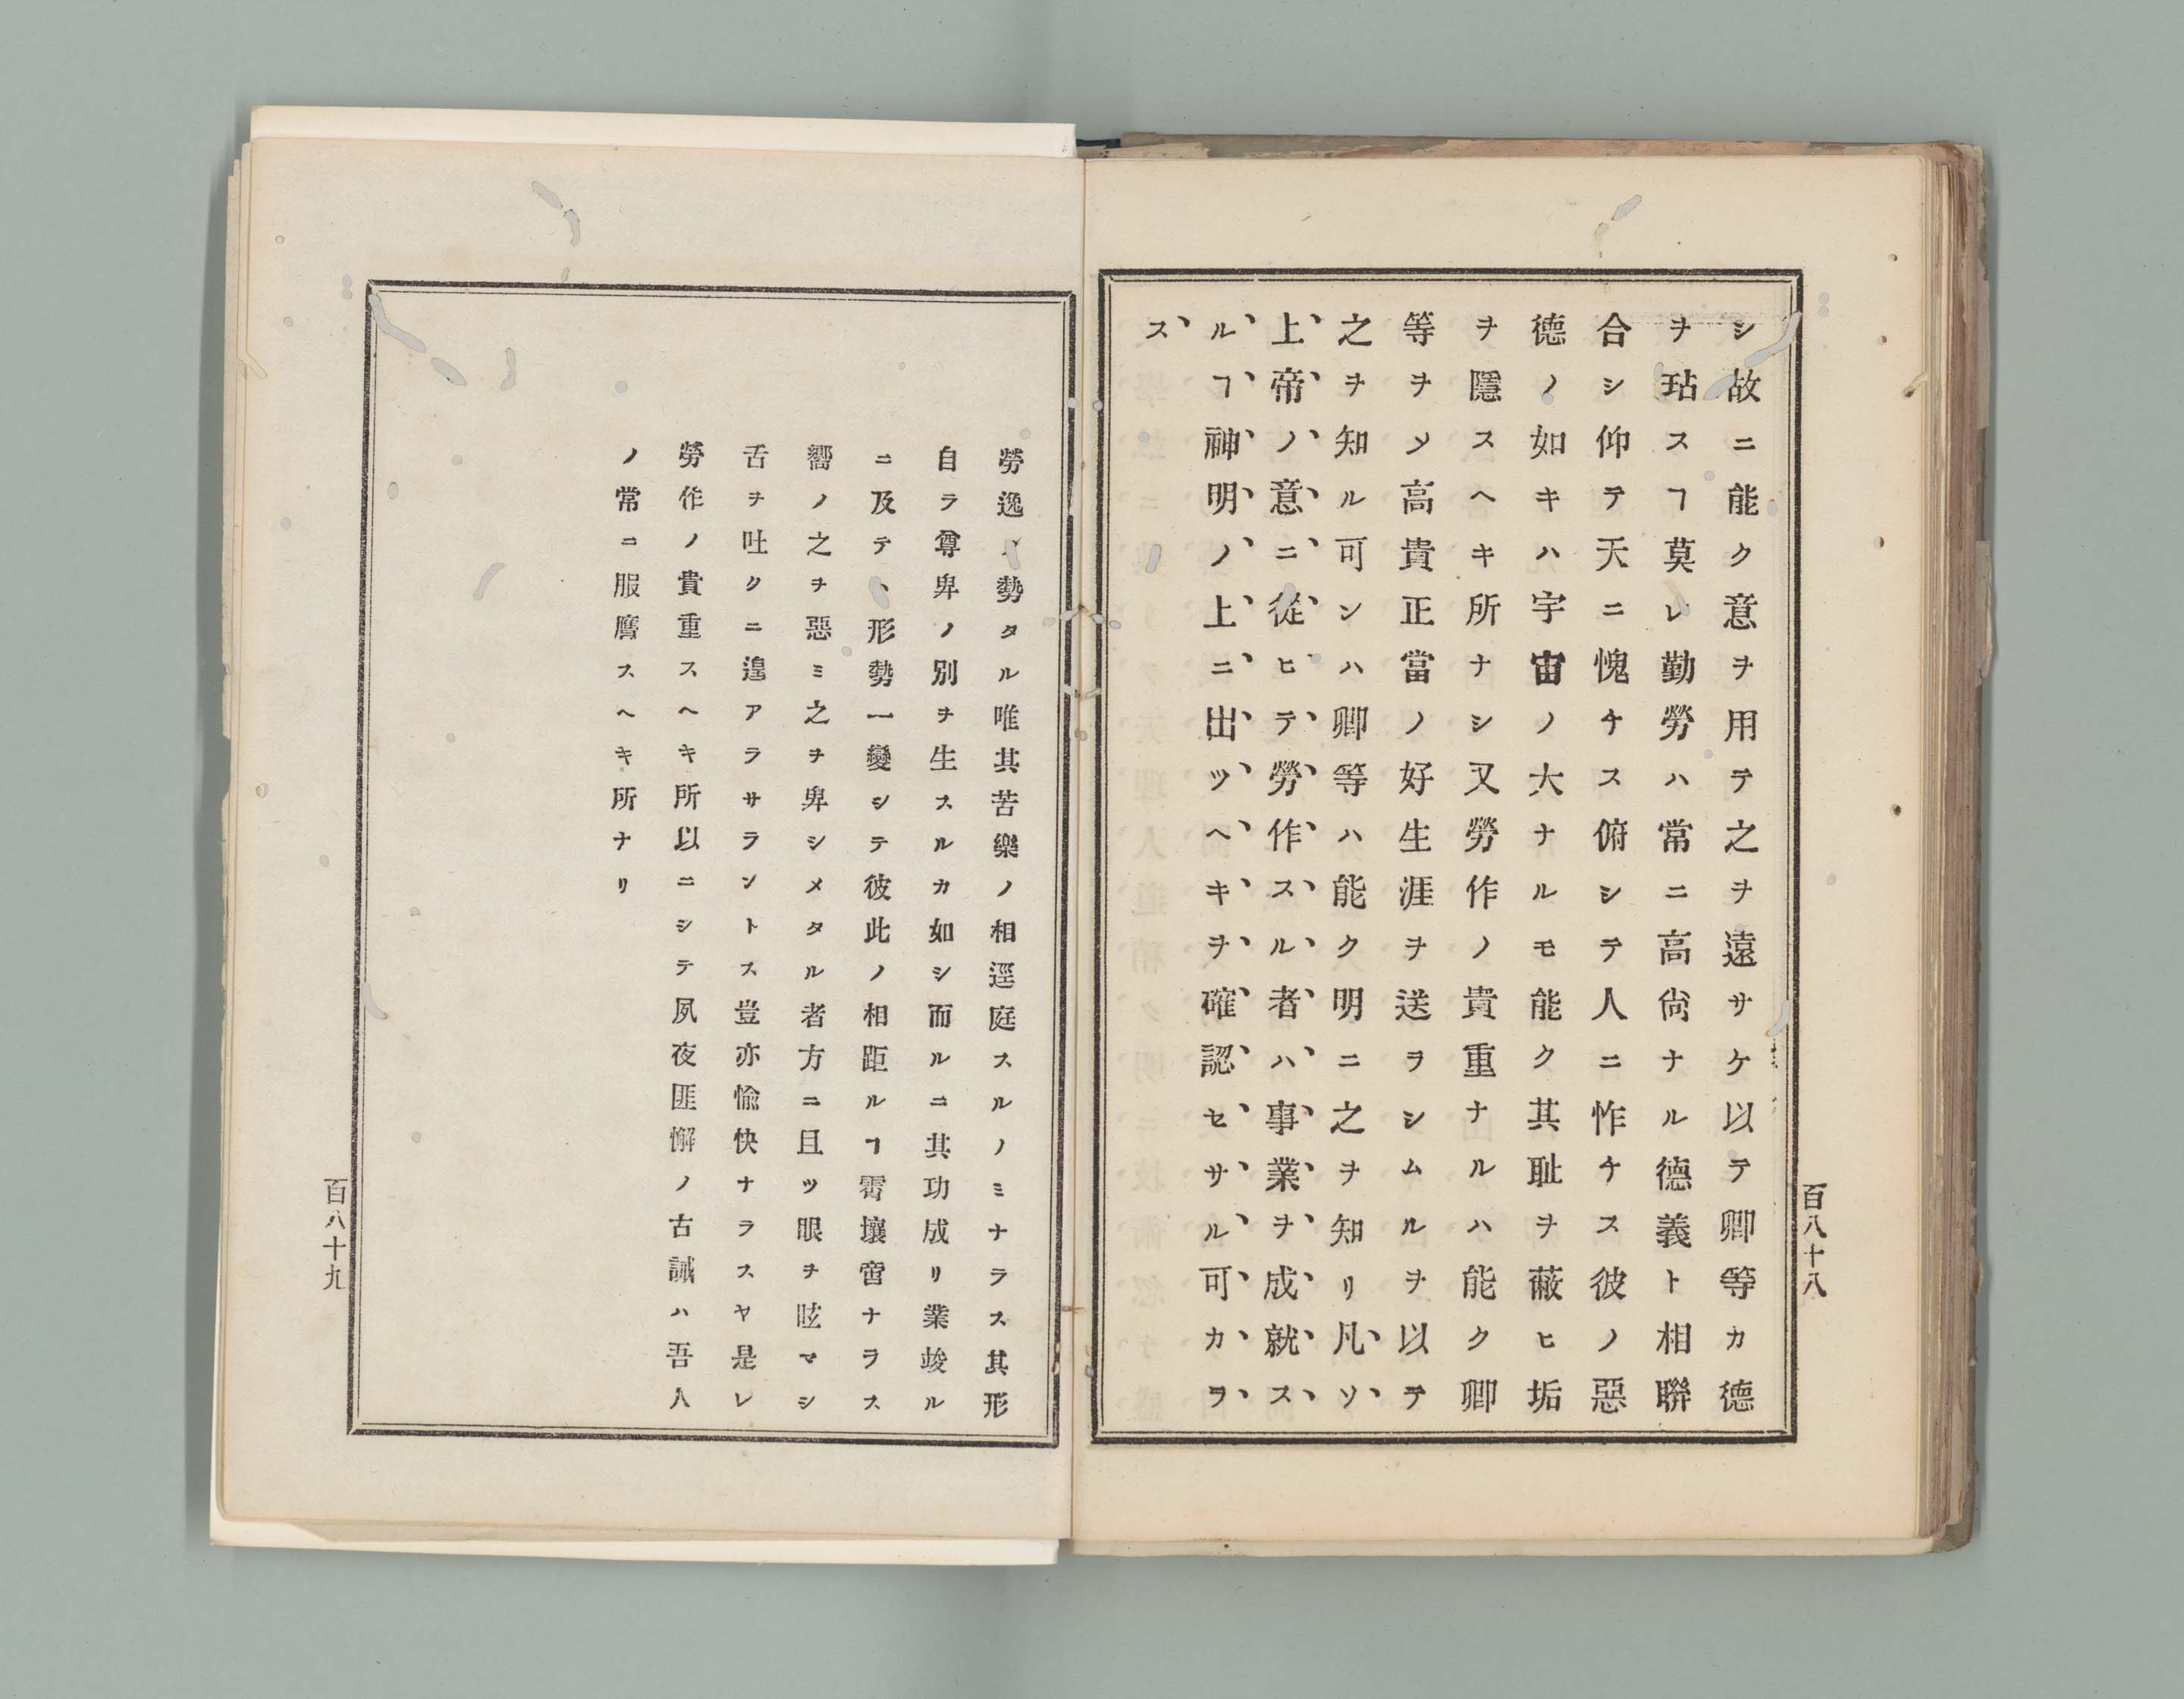 シ故ニ能ク意ヲ用テ之ヲ遠サケ以テ卿等カ德
ヲ玷スヿ莫レ勤勞ハ常ニ高尙ナル德義ト相聯
合シ仰テ天ニ愧チス俯シテ人ニ怍チス彼ノ惡
德ノ如キハ宇宙ノ大ナルモ能ク其耻ヲ蔽ヒ垢
ヲ隱スヘキ所ナシ又勞作ノ貴重ナルハ能ク卿
等ヲメ高貴正當ノ好生涯ヲ送ラシムルヲ以テ
之ヲ知ル可シハ卿等ハ能ク明ニ之ヲ知リ凡ソ
上帝ノ意ニ從ヒテ勞作スル者ハ事業ヲ成就ス
ルヿ神明ノ上ニ出ツヘキヲ確認セサル可カラ
ス
百八十八
勞逸ノ勢タル唯其苦樂ノ相逕庭スルノミナラス其形
自ラ尊卑ノ別ヲ生スルカ如シ而ルニ其功成リ業竣ル
ニ及テヽ形勢一變シテ彼此ノ相距ルヿ霄壤啻ナラス
嚮ノ之ヲ惡ミ之ヲ卑シメタル者方ニ且ツ眼ヲ眩マシ
舌ヲ吐クニ遑アラサラントス豈亦愉快ナラスヤ是レ
勞作ノ貴重スヘキ所以ニシテ夙夜匪懈ノ古誡ハ吾人
ノ常ニ服膺スヘキ所ナリ
百八十九